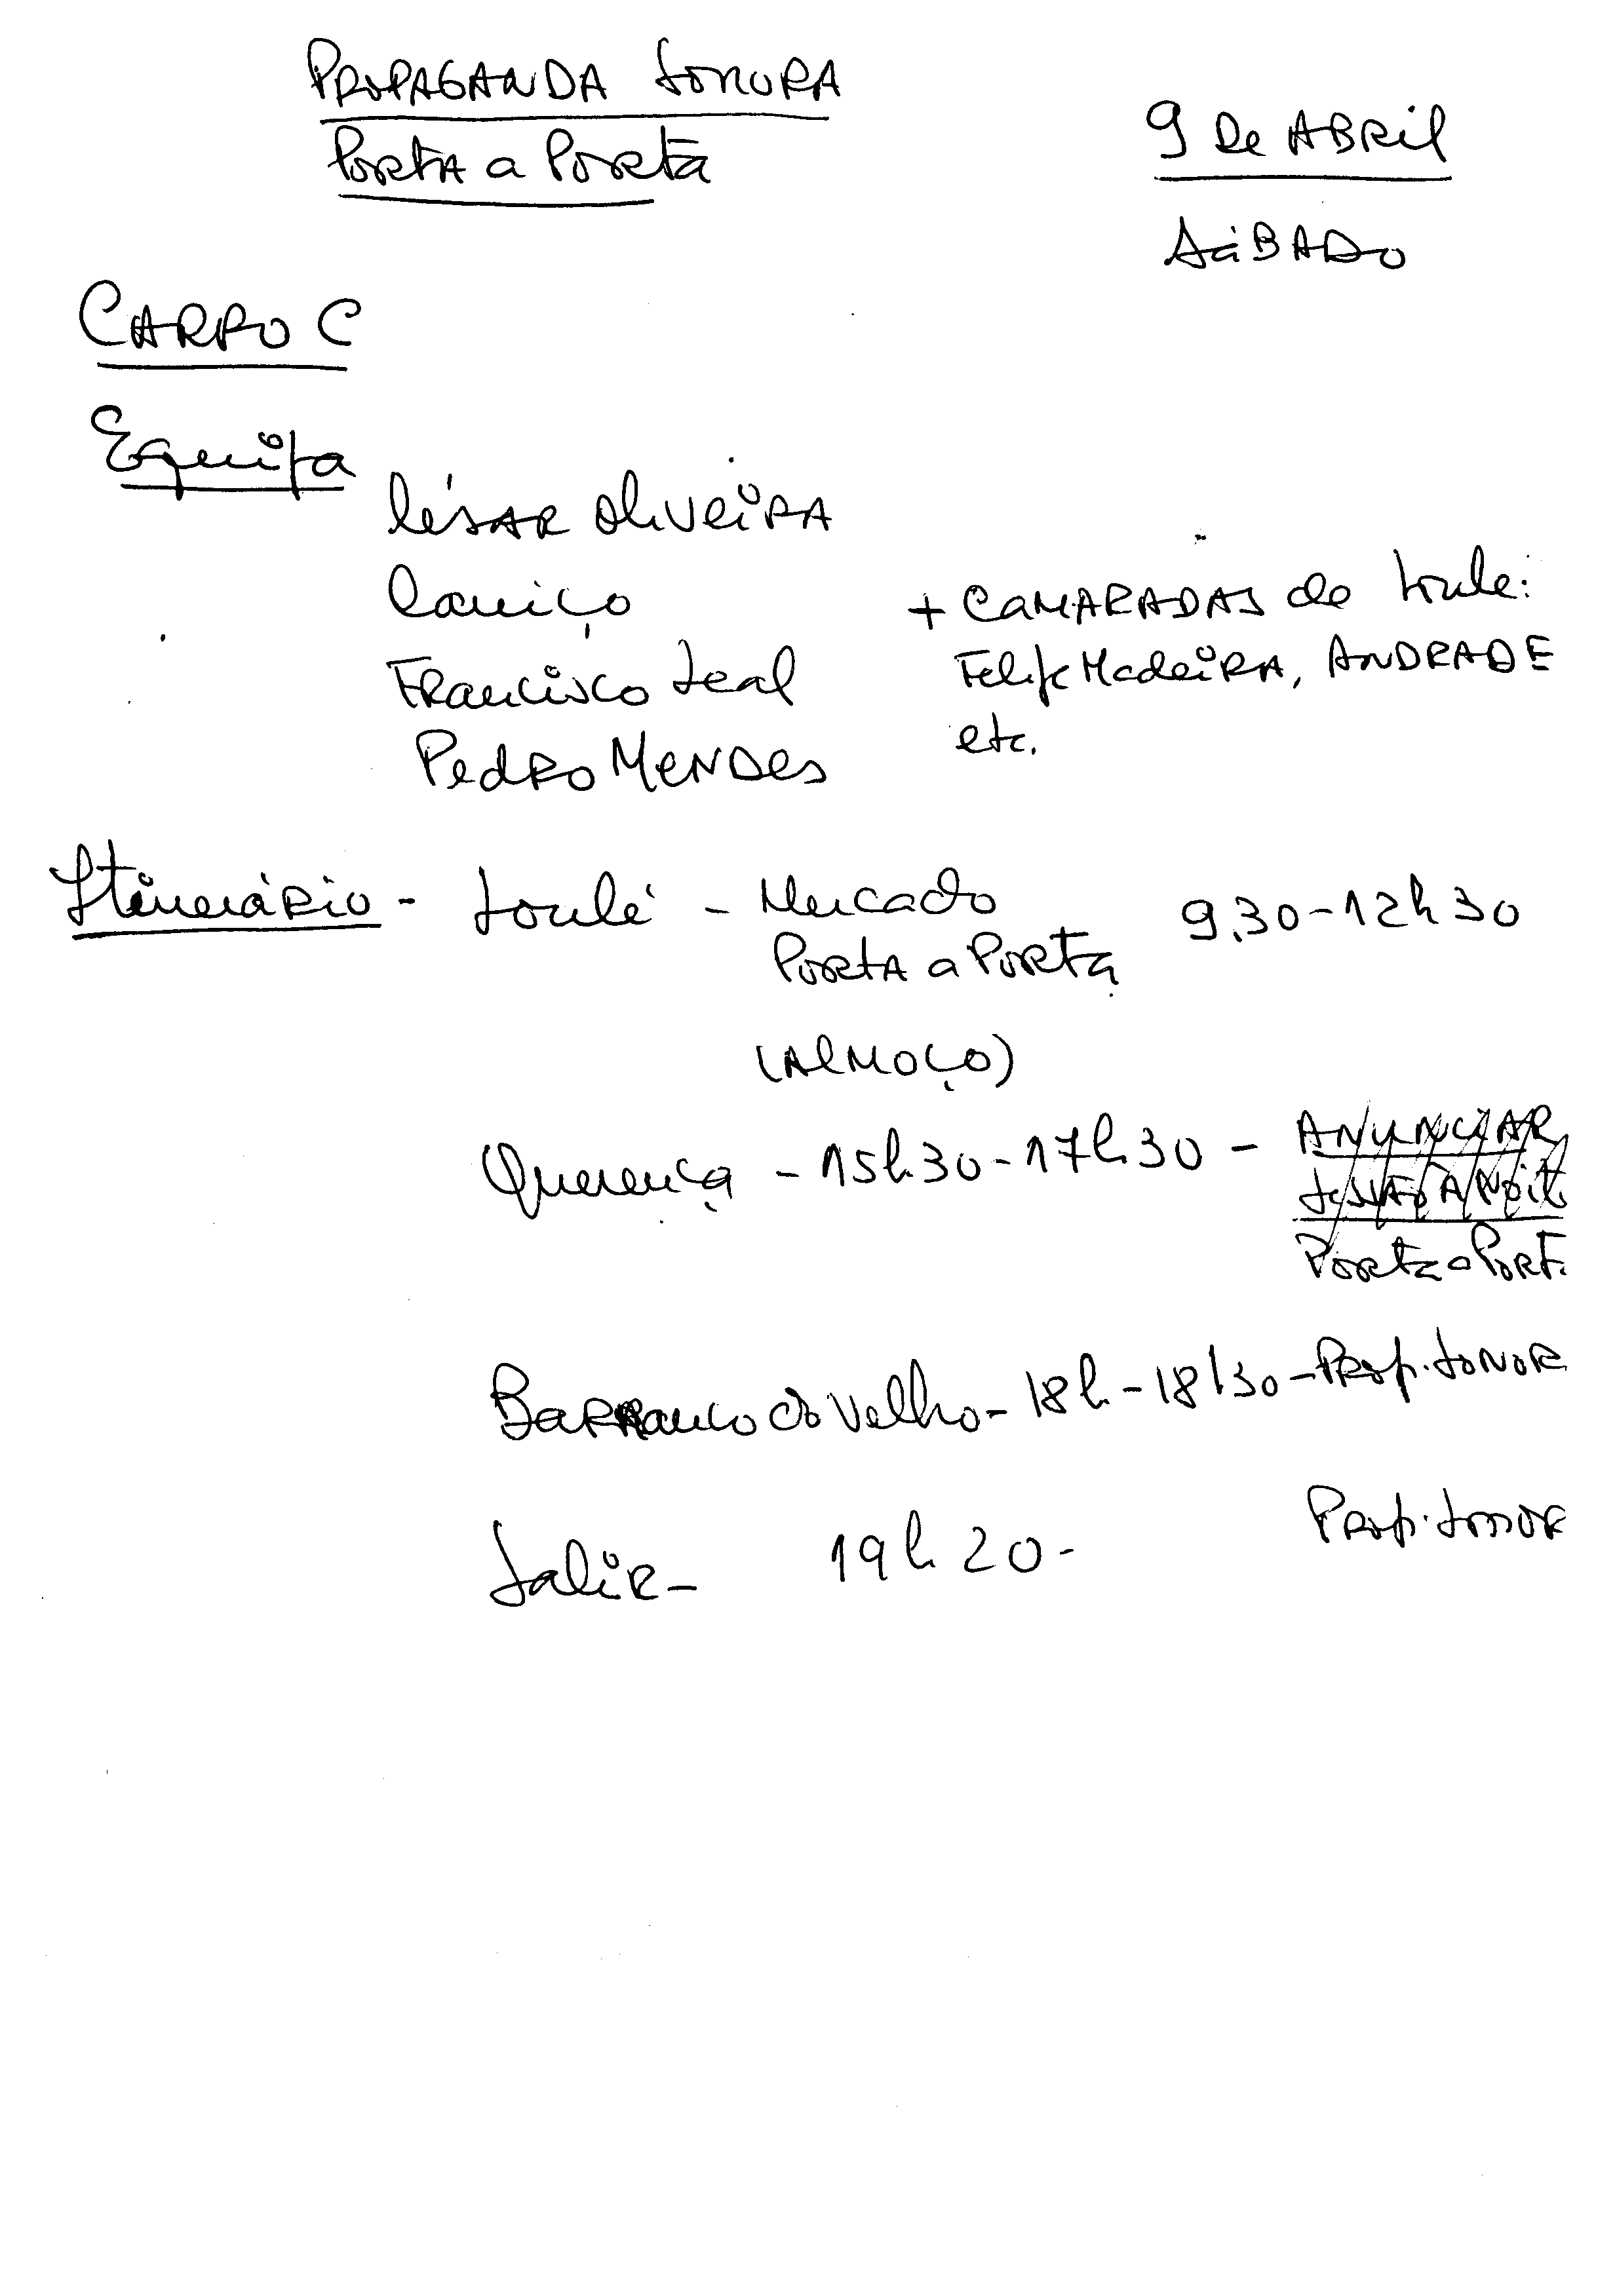 PROPAGANDA SONORA
PORTA a PORTA
9 De ABRil
SÁBADO
CARRO C
Equipa
CÉSAR OliVeiRA
Caniço
FRancisco Leal
PedRo MeNDes
+ CaMARADAS de Loule:
Felipe MadeiRA, ANDRADE
etc.
Itinerário - Loulé - Mercado 9.30-12h30
PORTA a PORTA
(AlMoço)
Querença - 15h.30-17h.30 - ANUNCIAR
SeSSÃO À Noite
Porta a PORT.
BaRRanco do Velho - 18h - 18h30 - PRop. SoNoR
Salir - 19h 20 - PRop. SonoR